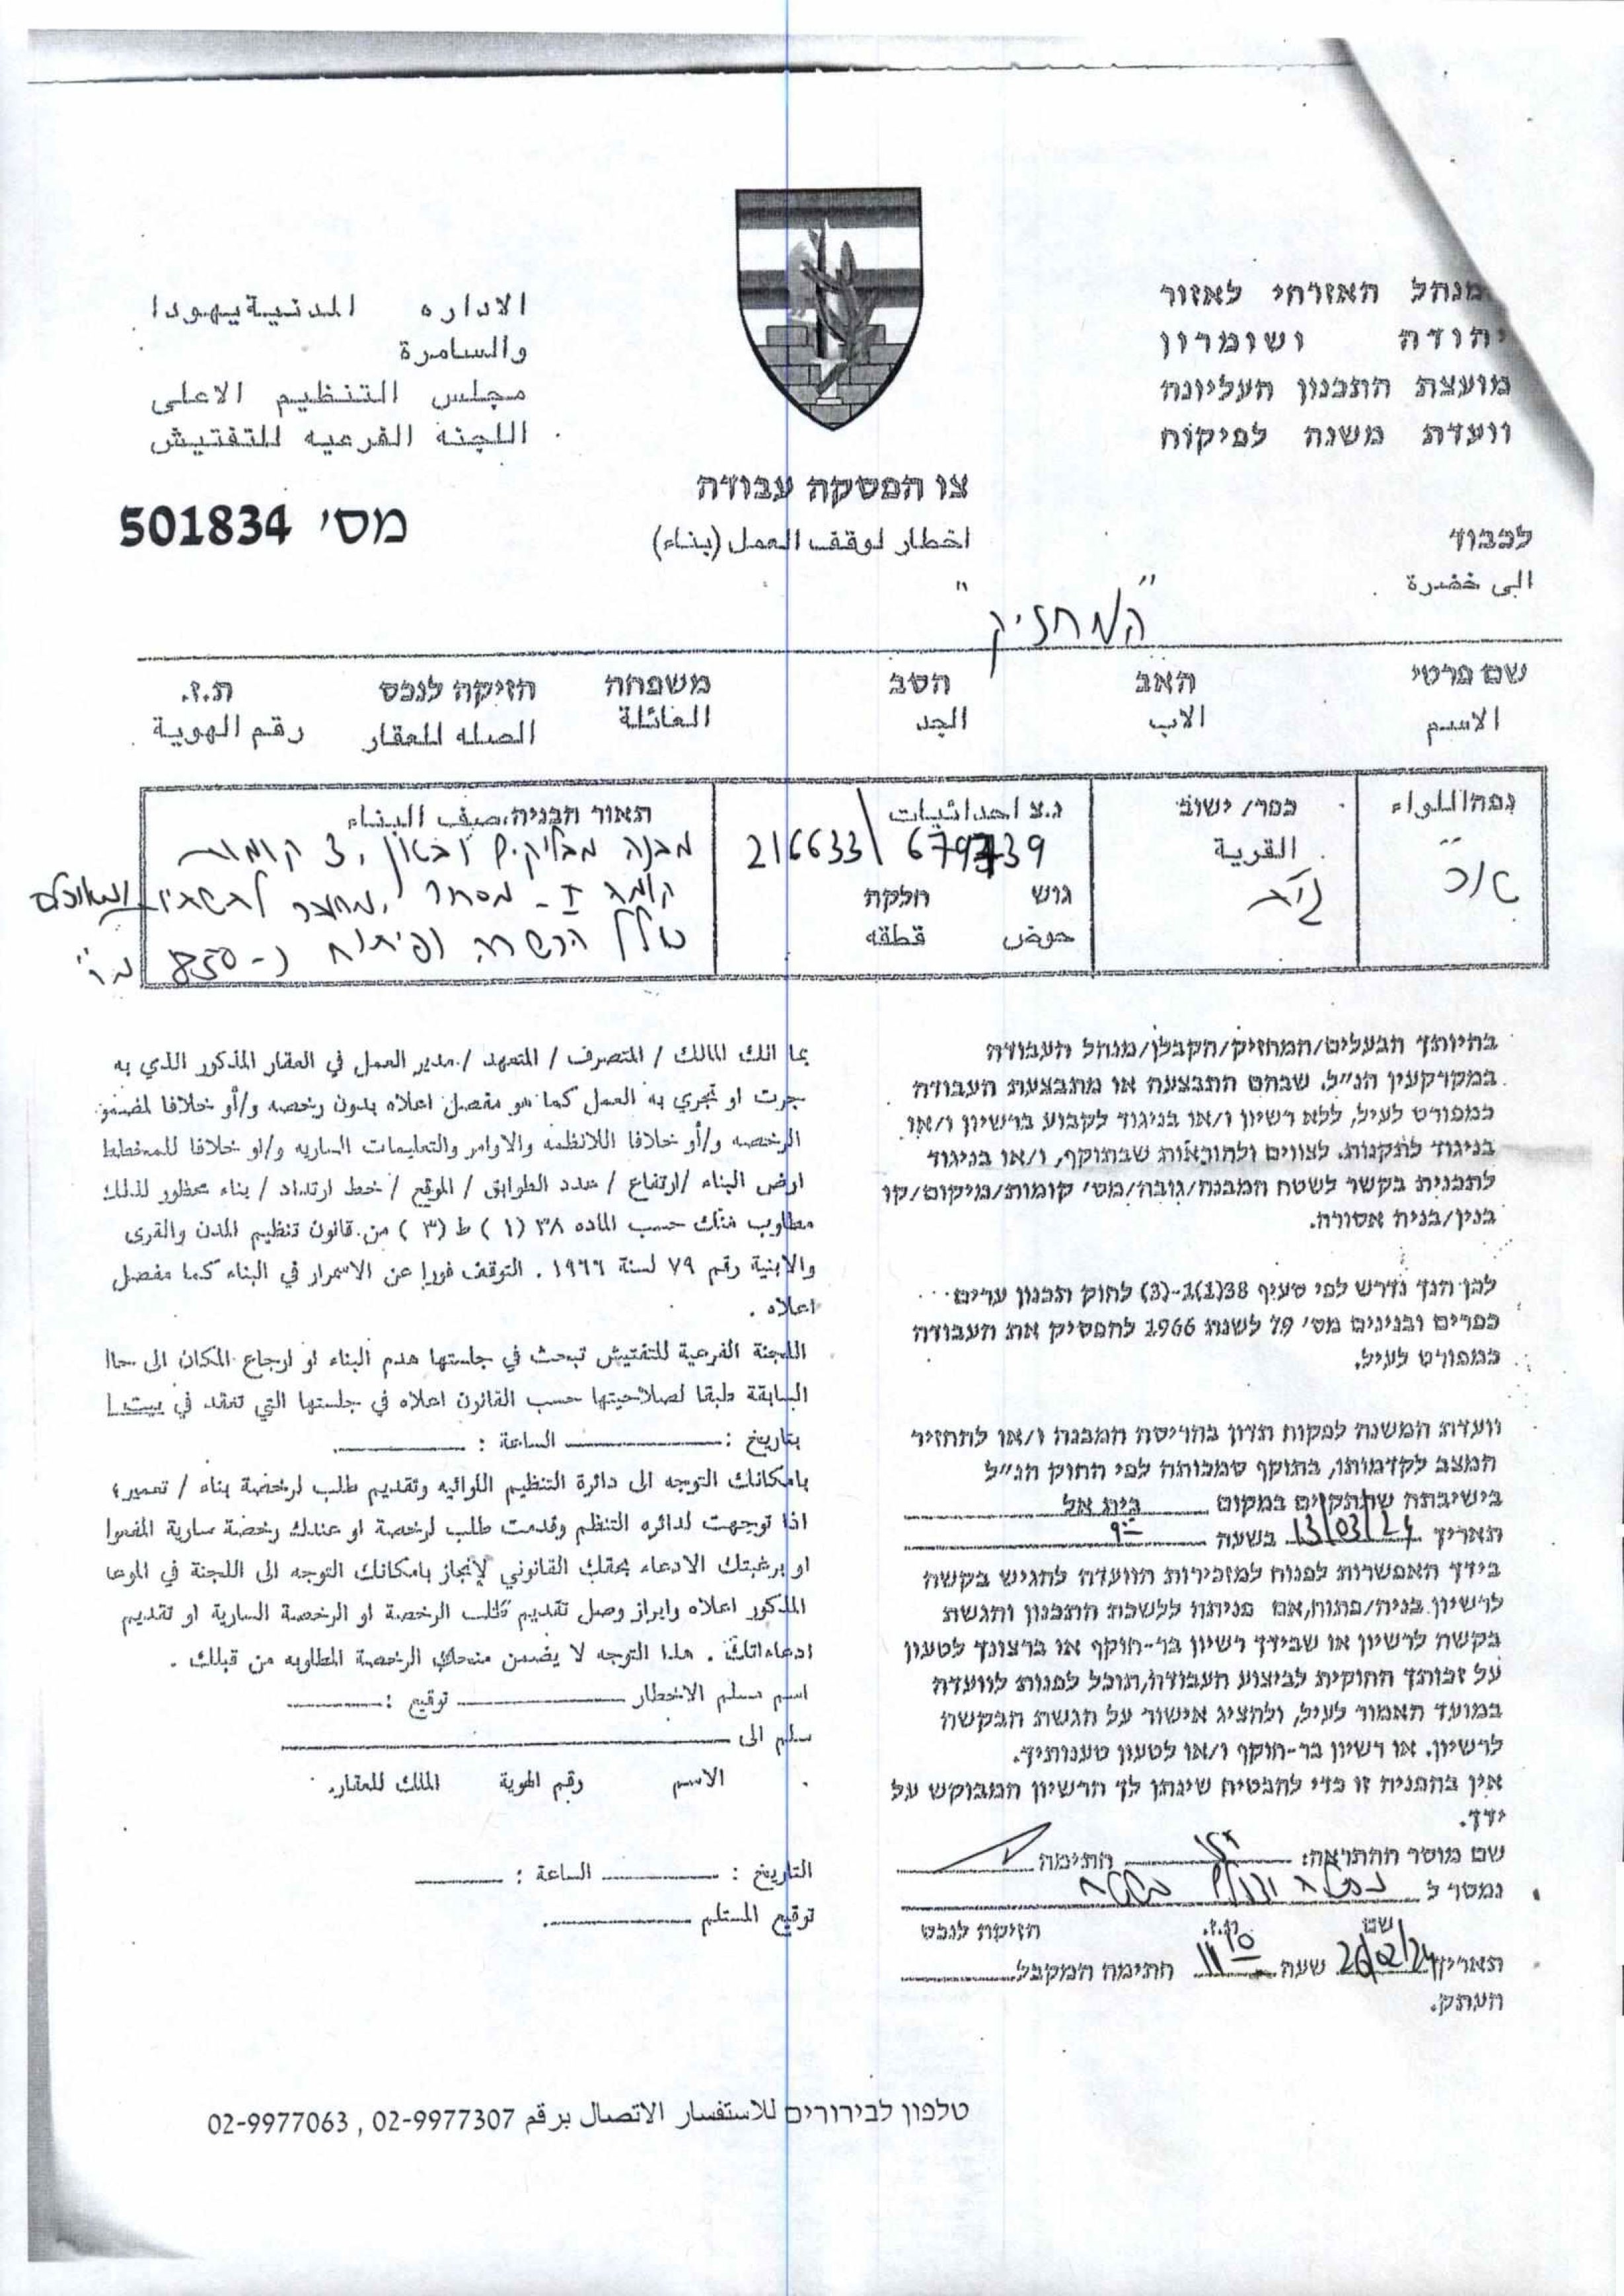 מנהל האזרחי לאזור
יהודה ושומרון
מועצת התכנון העליונה
וועדת משנה לפיקוח
الاداره المدنية يهودا
والسامرة
مجلس التنظيم الاعلى
اللجنه الفرعيه للتفتيش
צו הפסקה עבודה
اخطار لوقف العمل (بناء)
מס' 501834
לכבוד
الى حضرة
"המחזיק"
שם פרטי האב הסב משפחה חזיקה לנכס ת.ז.
الاسم الاب الجد العائلة الصله للعقار رقم الهوية
נפה اللواء כפר/ ישוב נ.צ احداثيات תאור הבניה، صيف البناء
القرية
216633/ 679739
מבנה מבלוקים ובטון, 3 קומות
קומה I - מסחר,
גוש חלקה
حوض قطقه
כולל הכשרה ופיתוח כ- 850 מ"ר
בהיותך הבעלים/המחזיק/הקבלן/מנהל העבודה
במקרקעין הנ"ל, שבהם התבצעה או מתבצעת העבודה
כמפורט לעיל, ללא רשיון ו/או בניגוד לקבוע ברשיון ו/או
בניגוד לתקנות, לצווים ולהוראות שבתוקף, ו/או בניגוד
לתכנית בקשר לשטח המבנה/גובה/מס' קומות/מיקום/קו
בנין/בניה אסורה.
לכן הנך נדרש לפי סעיף 38(1)ג-(3) לחוק תכנון ערים
כפרים ובנינים מס' 79 לשנת 1966 להפסיק את העבודה
כמפורט לעיל.
וועדת המשנה לפקוח תדון בהריסת המבנה ו/או להחזיר
המצב לקדמותו, בתוקף סמכותה לפי החוק הנ"ל
בישיבתה שתתקיים במקום בית אל
תאריך 13/03/24 בשעה 9:00
בידך האפשרות לפנות למזכירות הוועדה להגיש בקשה
לרשיון בניה/פתוח, אם פניתה ללשכת התכנון והגשת
בקשה לרשיון או שבידך רשיון בר-תוקף או ברצונך לטעון
על זכותך החוקית לביצוע העבודה, תוכל לפנות לוועדה
במועד האמור לעיל, ולהציג אישור על הגשת הבקשה
לרשיון. או רשיון בר-תוקף ו/או לטעון טענותיך.
אין בהפניה זו כדי להבטיח שינתן לך הרשיון המבוקש על
ידך.
שם מוסר ההתראה: חתימה
נמסר ל
שם ת.ז. חזיקה לנכס
תאריך 26/02/24 שעה 11:10 חתימה המקבל
העתק.
بما انك المالك / المتصرف / المتعهد / مدير العمل في العقار المذكور الذي به
جرت او تجري به العمل كما هو مفصل اعلاه بدون رخصه و/أو خلافا لمضمو
الرخصه و/أو خلافا اللانظمه والاوامر والتعليمات الساريه و/او خلافا للمخطط
ارض البناء /ارتفاع / عدد الطوابق / الموقع / خط ارتداد / بناء محظور لذلك
مطلوب منك حسب الماده ٣٨ (١) ط (٣) من قانون تنظيم المدن والقرى
والابنية رقم ٧٩ لسنة ١٩٦٦ . التوقف فورا عن الاسمرار في البناء كما مفصل
اعلاه .
اللجنة الفرعية للتفتيش تبحث في جلستها هدم البناء او ارجاع المكان الى حاا
السابقة طبقا لصلاحيتها حسب القانون اعلاه في جلستها التي تنعقد في بيت ا
بتاريخ : الساعة :
بامكانك التوجه الى دائرة التنظيم اللوائيه وتقديم طلب لرخصة بناء / تعمير؛
اذا توجهت لدائره التنظم وقدمت طلب لرخصة او عندك رخصة سارية المفعوا
او برغبتك الادعاء بحقك القانوني لإنجاز بامكانك التوجه الى اللجنة في الموعا
المذكور اعلاه وابراز وصل تقديم طلب الرخصة او الرخصة السارية او تقديم
ادعاءاتك . هذا التوجه لا يضمن منحك الرخصة المطلوبه من قبلك .
اسم مسلم الاخطار توقيع :
سلم الى
الاسم رقم الهوية الملك للعقار.
التاريخ : الساعة :
توقيع المستلم
טלפון לבירורים للاستفسار الاتصال برقم 02-9977063 , 02-9977307